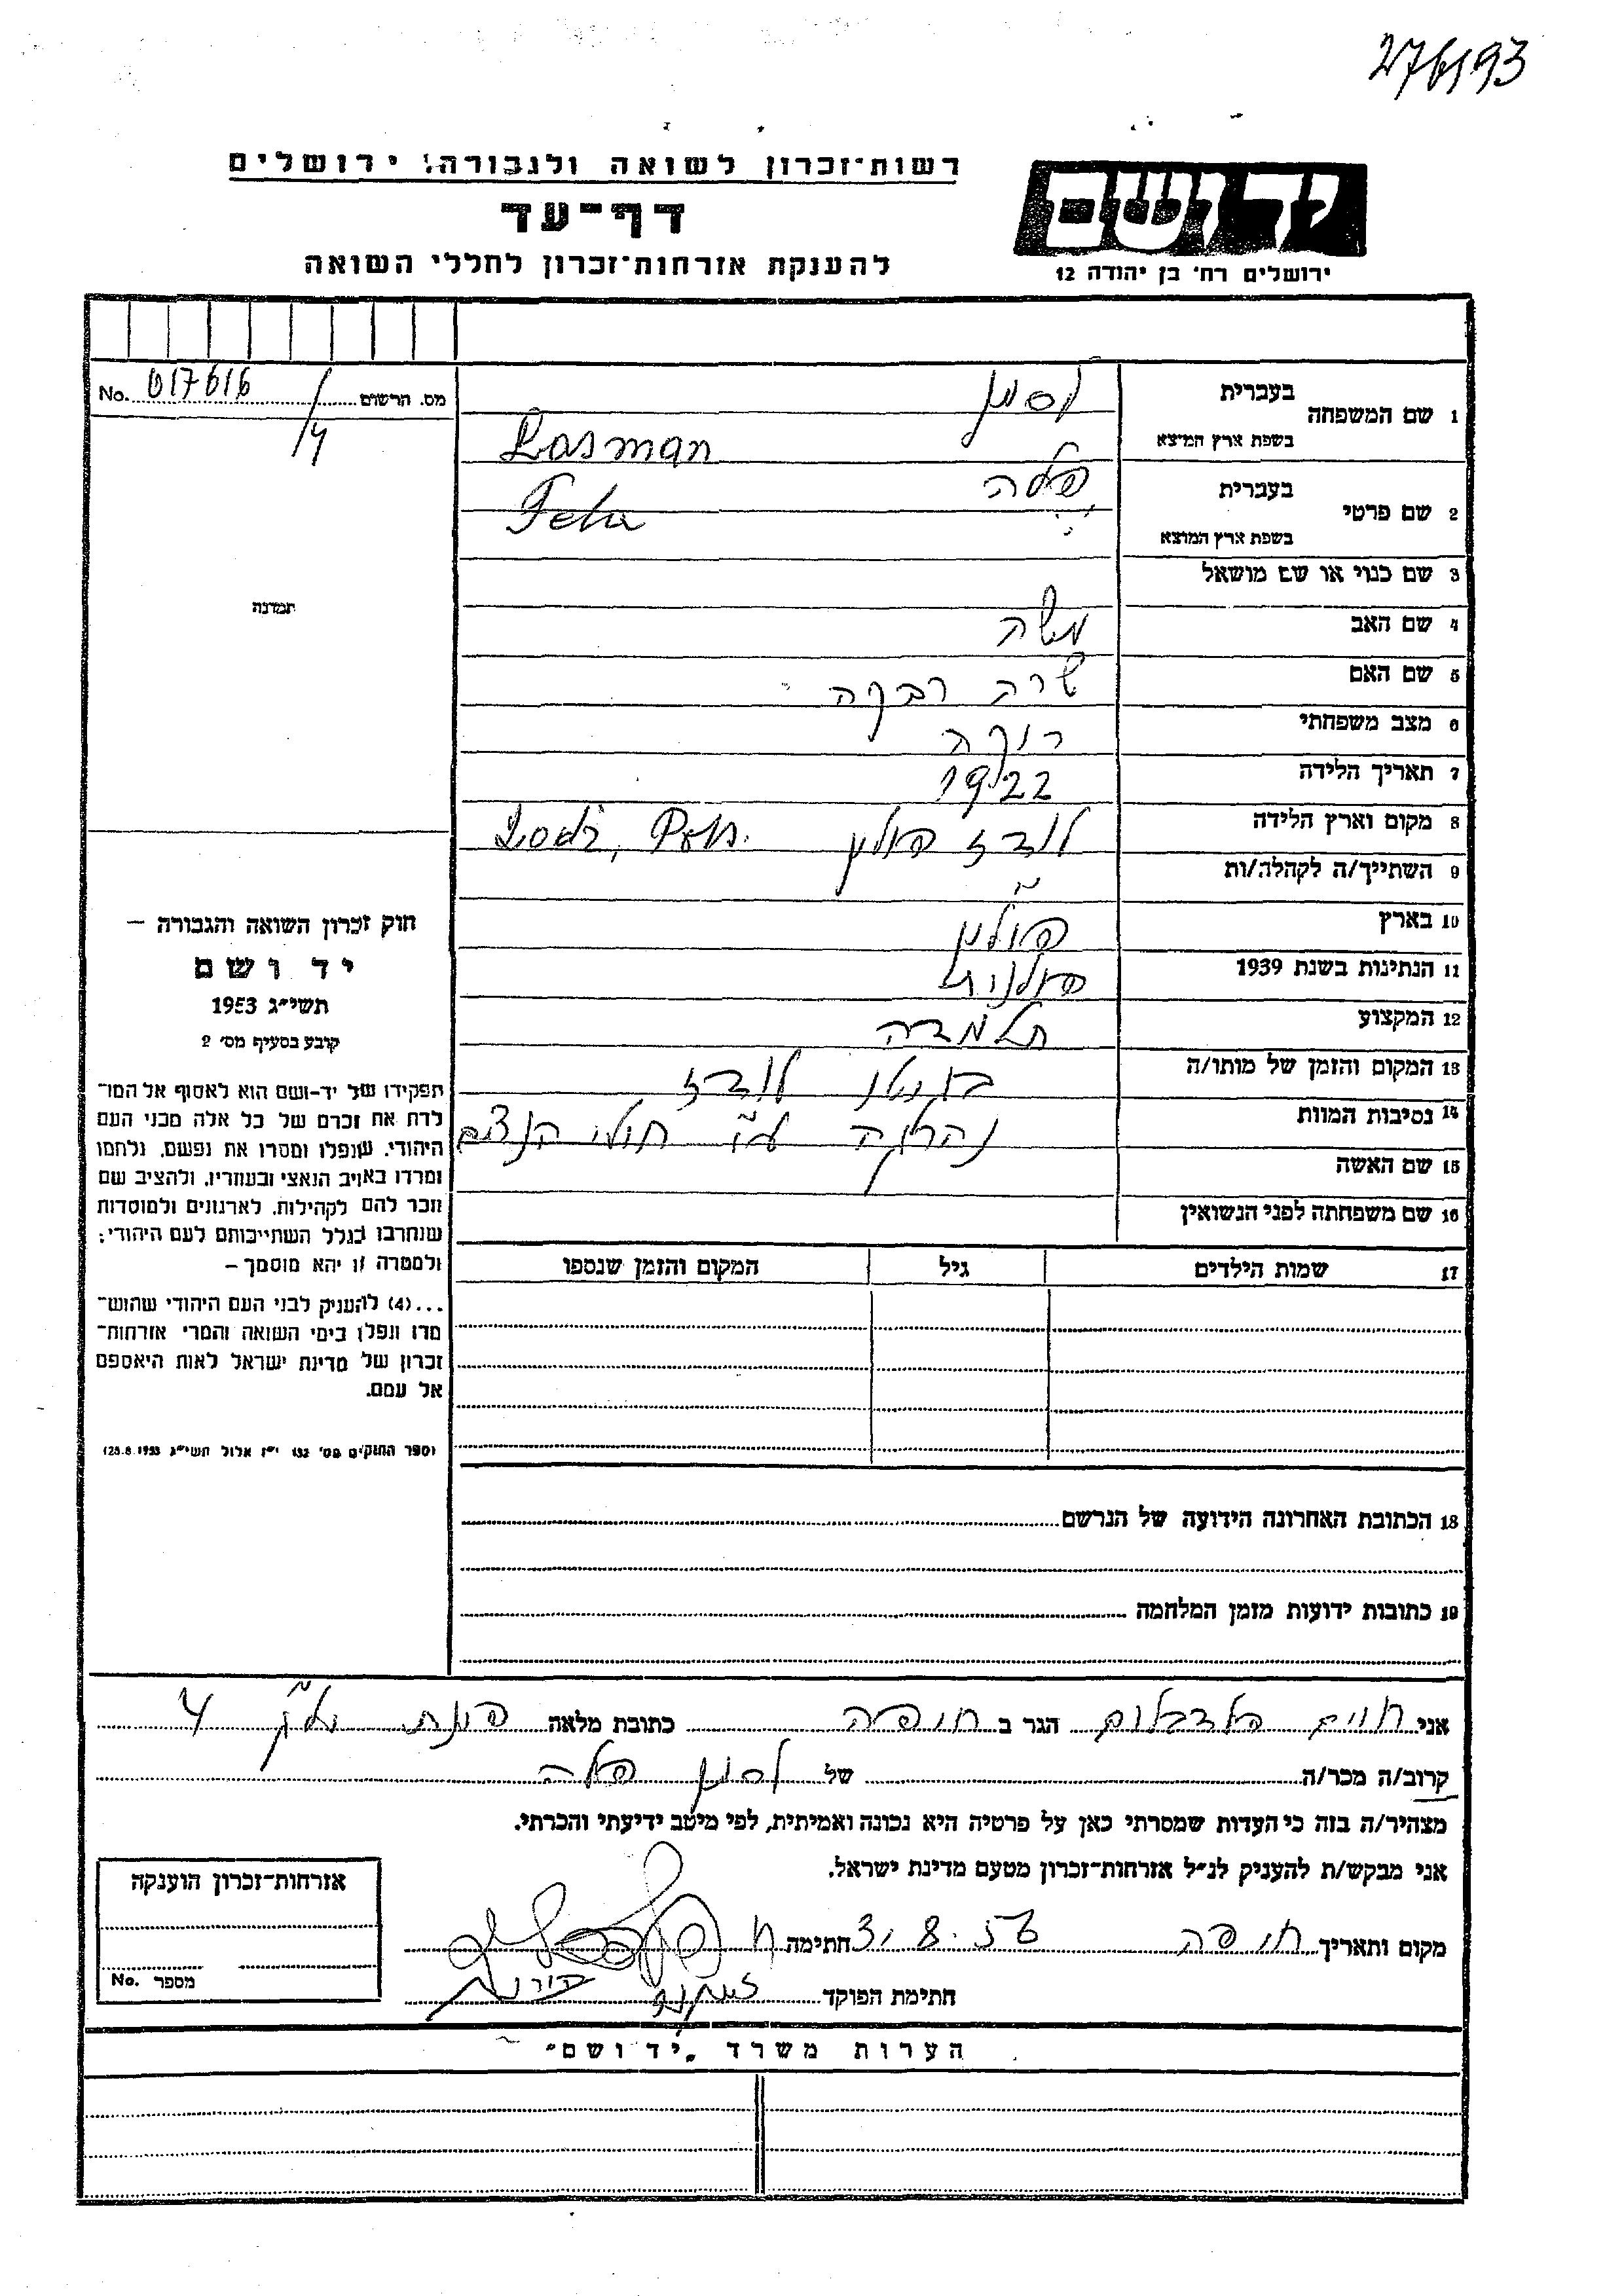 276193
רשות־זכרון לשואה ולגבורה, ירושלים
דף־עד
להענקת אזרחות־זכרון לחללי השואה
יד ושם
ירושלים רח' בן יהודה 12
מס. הרשום No. 017616
1 שם המשפחה בעברית לסמן
בשפת ארץ המוצא Lasman
2 שם פרטי בעברית פלה
בשפת ארץ המוצא Fela
3 שם כנוי או שם מושאל
4 שם האב משה
5 שם האם שרה רבקה
6 מצב משפחתי רווקה
7 תאריך הלידה 1922
8 מקום וארץ הלידה לודז פולין Lodz, Poln.
9 השתייך/ה לקהלה/ות "
10 בארץ פולין
11 הנתינות בשנת 1939 פולנית
12 המקצוע תלמידה
13 המקום והזמן של מותו/ה בגטו לודז
14 נסיבות המוות נהרגה ע"י חולי הנצים
15 שם האשה
16 שם משפחתה לפני הנשואין
17 שמות הילדים גיל המקום והזמן שנספו
18 הכתובת האחרונה הידועה של הנרשם
19 כתובות ידועות מזמן המלחמה
תמונה
חוק זכרון השואה והגבורה —
יד ושם
תשי"ג 1953
קובע בסעיף מס' 2
תפקידו של יד-ושם הוא לאסוף אל המו־
לדת את זכרם של כל אלה מבני העם
היהודי, שנפלו ומסרו את נפשם, נלחמו
ומרדו באויב הנאצי ובעוזריו, ולהציב שם
וזכר להם לקהילות, לארגונים ולמוסדות
שנחרבו בגלל השתייכותם לעם היהודי;
ולמטרה זו יהא מוסמך —
...(4) להעניק לבני העם היהודי שהוש־
מדו ונפלו בימי השואה והמרי אזרחות־
זכרון של מדינת ישראל לאות היאספם
אל עמם.
(ספר החוקים מס' 132 י"ז אלול תשי"ג 28.8.1953)
אני חיים הגר ב חיפה כתובת מלאה 4
קרוב/ה מכר/ה של לסמן פלה
מצהיר/ה בזה כי העדות שמסרתי כאן על פרטיה היא נכונה ואמיתית, לפי מיטב ידיעתי והכרתי.
אני מבקש/ת להעניק לנ"ל אזרחות־זכרון מטעם מדינת ישראל.
מקום ותאריך חיפה 31.8.56 חתימה
חתימת הפוקד
אזרחות־זכרון הוענקה
מספר No.
הערות משרד "יד ושם"